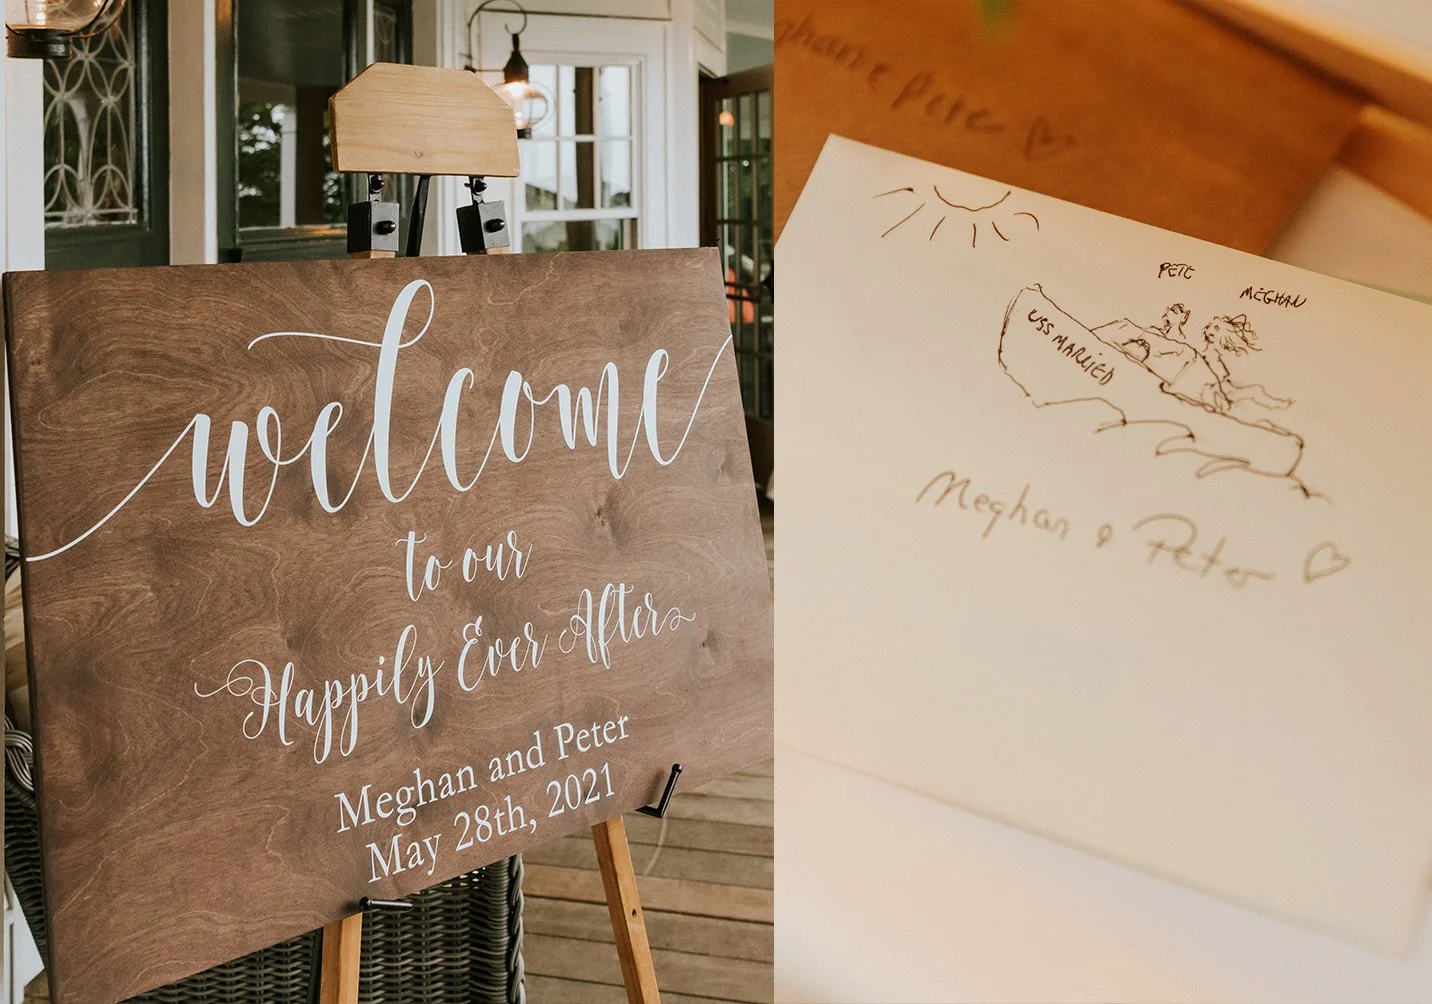 welcome
to our
Happily Ever After
Meghan and Peter
May 28th, 2021
ghan & Pete
PETE
MEGHAN
USS MARRIED
Meghan & Peter